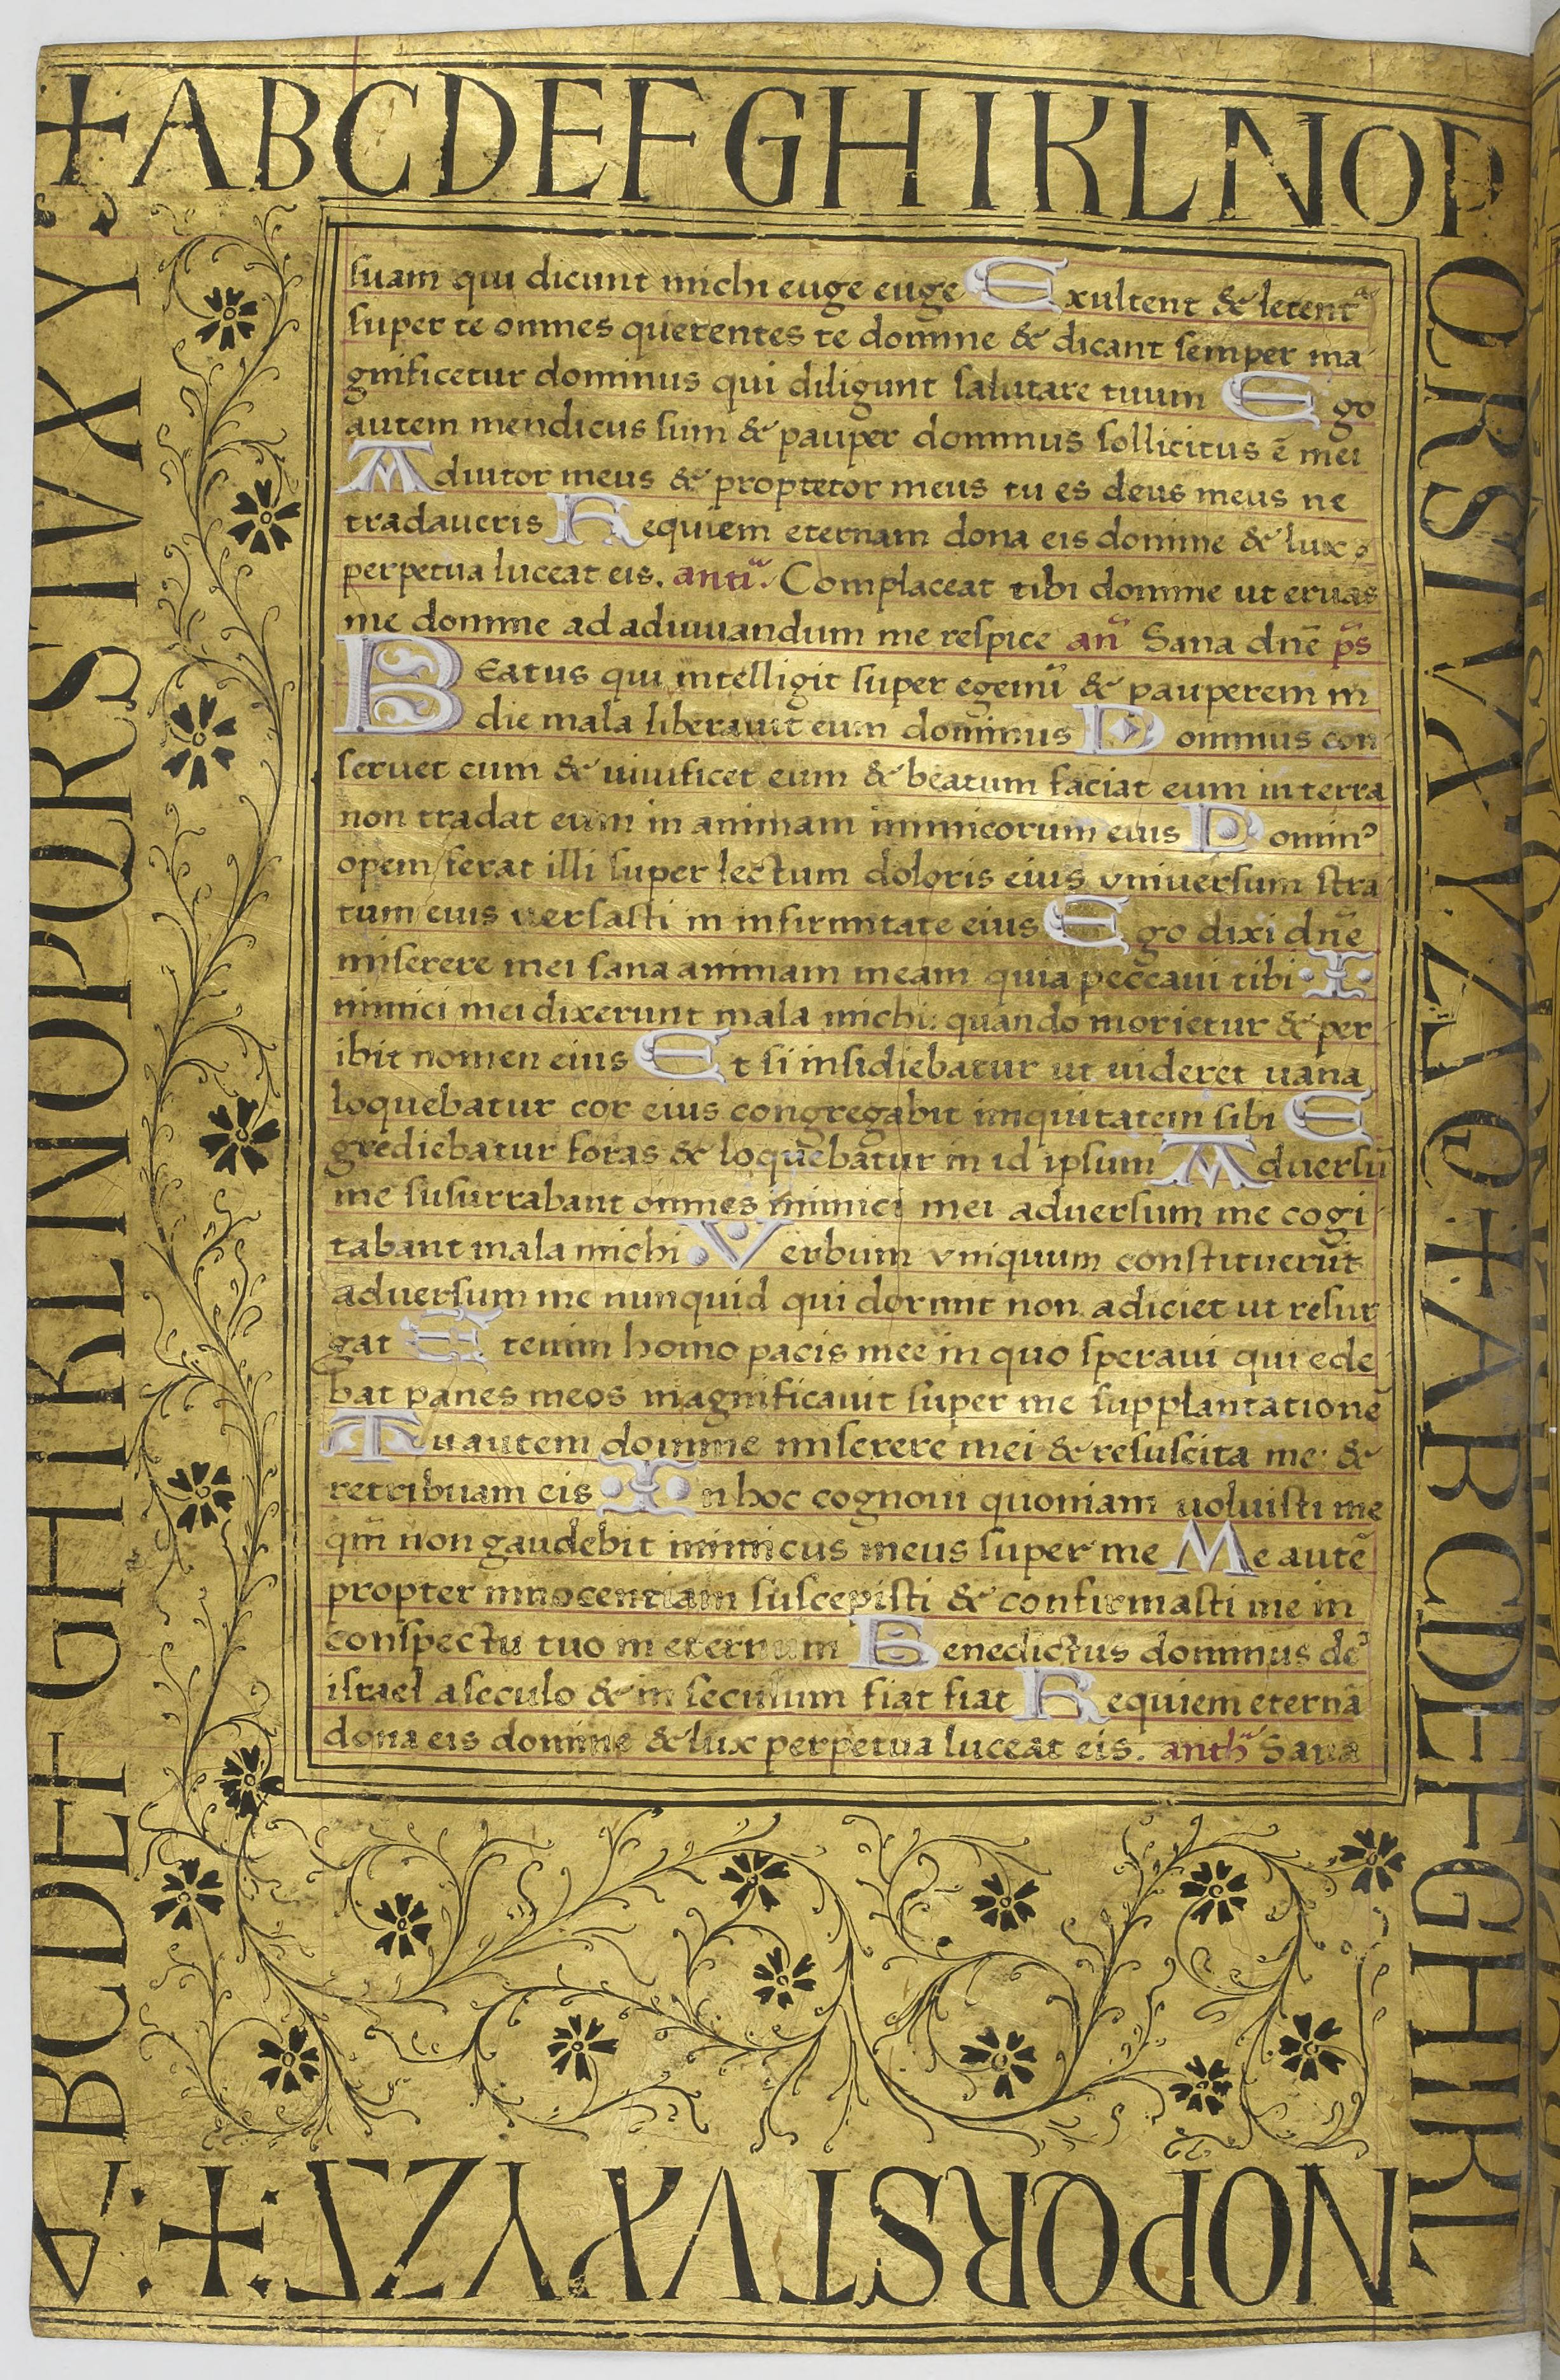 +ABCDEFGHIKLNOP
QRSTVXYZ
suam qui dicunt michi euge euge Exultent & letentᵃ
super te omnes querentes te domine & dicant semper ma
gnificetur dominus qui diligunt salutare tuum Ego
autem mendicus sum & pauper dominus sollicitus ē mei
Adiutor meus & proptetor meus tu es deus meus ne
tradaveris Requiem eternam dona eis domine & lux
perpetua luceat eis. antiᵃ. Complaceat tibi domine ut eruas
me domine ad adiuuandum me respice an̄ Sana dn̄e p̄s
BEatus qui intelligit super egenū & pauperem in
die mala liberauit eum dominus Dominus con
seruet eum & uiuificet eum & beatum faciat eum in terra
non tradat eum in animam inimicorum eius Dominꝰ
opem ferat illi super lectum doloris eius vniuersum stra
tum eius versasti in infirmitate eius Ego dixi dn̄e
miserere mei sana animam meam quia peccaui tibi I
nimici mei dixerunt mala michi: quando morietur & per
ibit nomen eius Et si insidiebatur ut uideret uana
loquebatur cor eius congregabit iniquitatem sibi E
grediebatur foras & loquebatur in id ipsum Aduersū
me susurrabant omnes inimici mei aduersum me cogi
tabant mala michi Verbum vniquum constituerūt
aduersum me nunquid qui dormit non adiciet ut resur
gat Etenim homo pacis mee in quo speraui qui ede
bat panes meos magnificauit super me supplantationē
Tu autem domine miserere mei & resuscita me: &
retribuam eis In hoc cognoui quoniam uoluisti me
qm̄ non gaudebit inimicus meus super me Me autē
propter innocentiam suscepisti & confirmasti me in
conspectu tuo in eternum Benedictus dominus deꝰ
israel a seculo & in seculum fiat fiat Requiem eternā
dona eis domine & lux perpetua luceat eis. anthᵃ Sana
+ABCDEFGHIKL
NOPQRSTVXYZ
+
A
BCDEFGHIKLNOPQRSTVXY